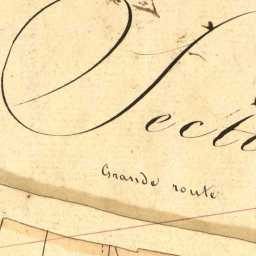 Secti
Grande route